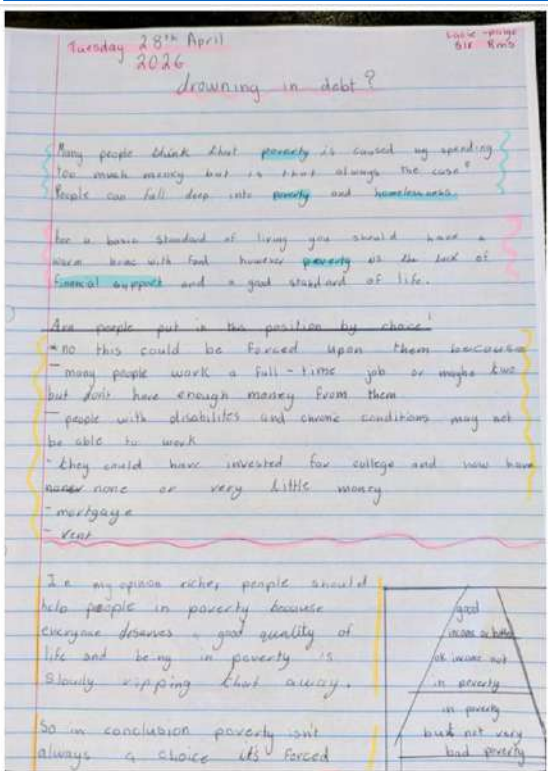 Tuesday 28th April
2026
drowning in debt?
Many people think that poverty is caused by spending
too much money but is that always the case?
People can fall deep into poverty and homelessness.
For a basic standard of living you should have a
warm home with food however poverty is the lack of
financial support and a good standard of life.
Are people put in this position by choice?
*no this could be forced upon them because
- many people work a full-time job or maybe two
but don't have enough money from them
- people with disabilites and chronic conditions may not
be able to work
- they could have invested for college and now have
none or very little money
- mortgage
- rent
In my opinon richer people should
help people in poverty because
everyone deserves a good quality of
life and being in poverty is
slowly ripping that away.
So in conclusion poverty isn't
always a choice it's forced
good
income or better
ok income not
in poverty
in poverty
but not very
bad poverty